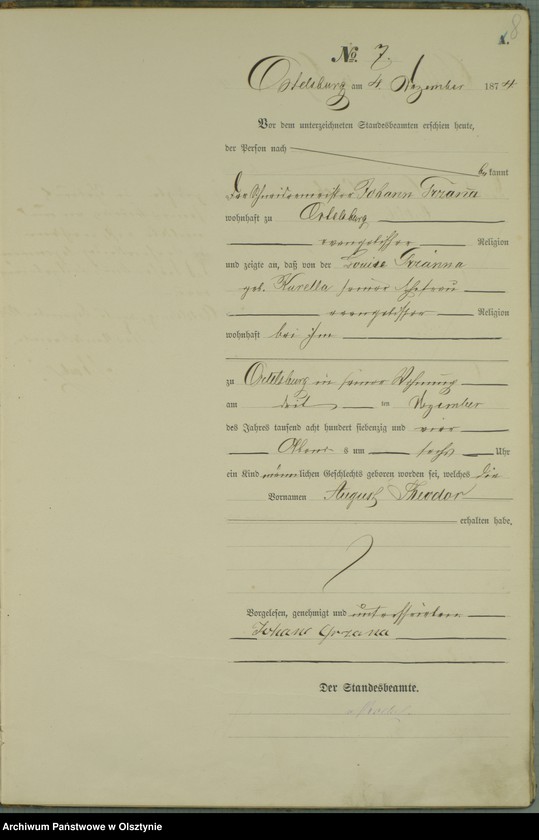 8
A.
No. 7.
Ortelsburg am 4. Dezember 1874
Vor dem unterzeichneten Standesbeamten erschien heute,
der Person nach
bekannt
Der Schneidermeister Johann Grzanna
wohnhaft zu Ortelsburg
evangelischer Religion
und zeigte an, daß von der Louise Grzanna
geb. Kurella seiner Ehefrau
evangelischer Religion
wohnhaft bei ihm
zu Ortelsburg in seiner Wohnung
am drei ten Dezember
des Jahres tausend acht hundert siebenzig und vier
Abends um sechs Uhr
ein Kind männlichen Geschlechts geboren worden sei, welches die
Vornamen August Theodor
erhalten habe,
Vorgelesen, genehmigt und unterschrieben
Johann Grzana
Der Standesbeamte.
Archiwum Państwowe w Olsztynie